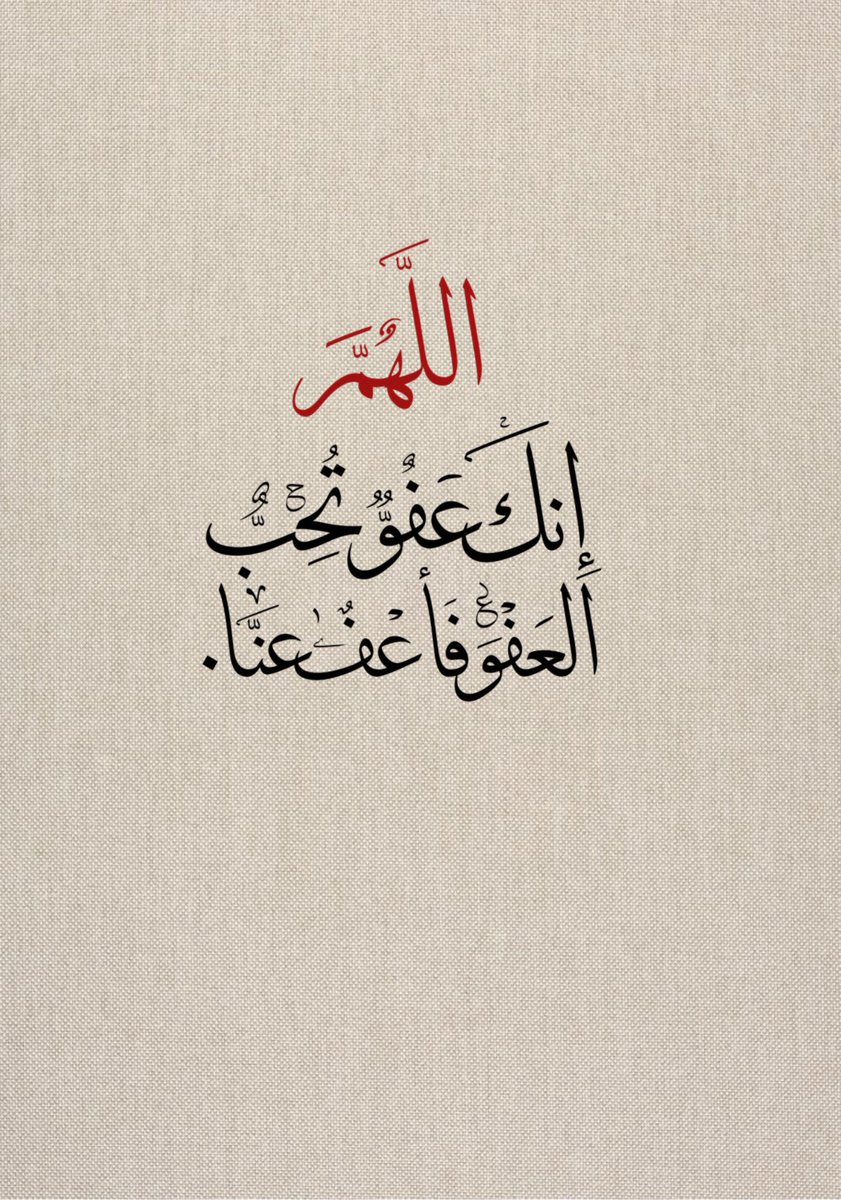 اللَّهُمَّ
إِنكَ عَفُوٌّ تُحِبُّ
العَفْوَ فَأعْفُ عَنَّا.